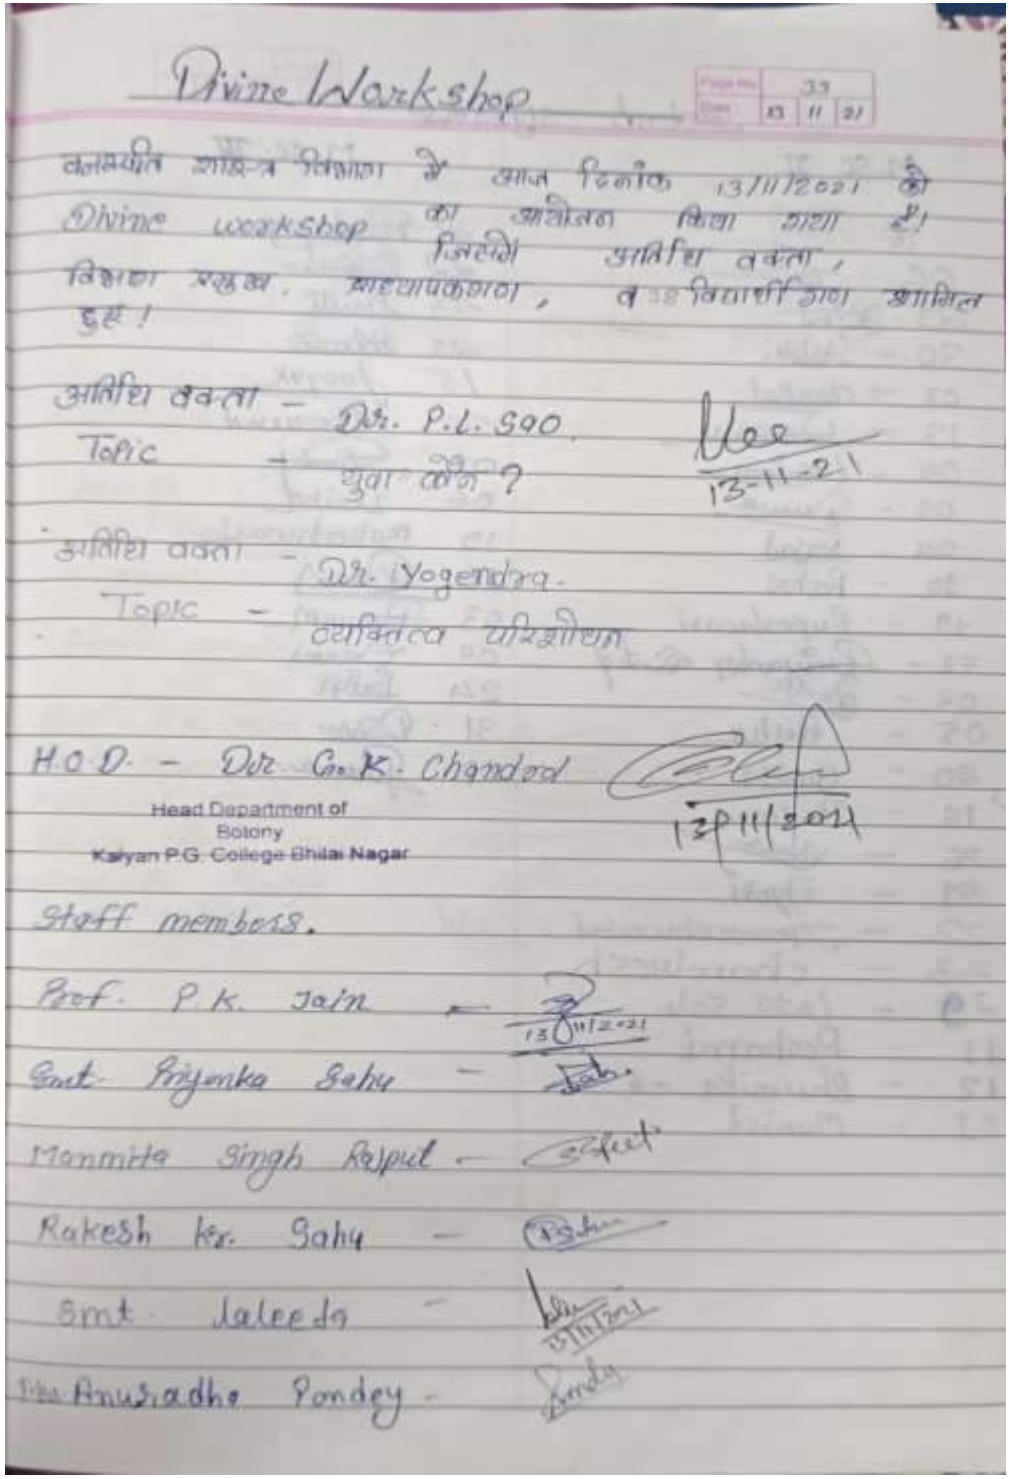 Divine Workshop
Page No. 39
Date 13 11 21
वनस्पति शास्त्र विभाग में आज दिनांक 13/11/2021 को
Divine workshop का आयोजन किया गया है।
जिसमें अतिथि वक्ता,
विभाग प्रमुख, प्राध्यापकगण, व विद्यार्थी गण शामिल
हुए!
अतिथि वक्ता - Dr. P.L. Sao.
13-11-21
Topic - युवा कौन ?
अतिथि वक्ता - Dr. Yogendra.
Topic - व्यक्तित्व परिशोधन
H.O.D. - Dr G.K. Chandrol
13/11/2021
Head Department of
Botony
Kalyan P.G. College Bhilai Nagar
Staff members.
Prof. P.K. Jain -
13/11/2021
Smt. Priyanka Sahu -
Manmita Singh Rajput -
Rakesh kr. Sahu -
Smt. Laleeta -
13/11/2021
Anuradha Pandey -